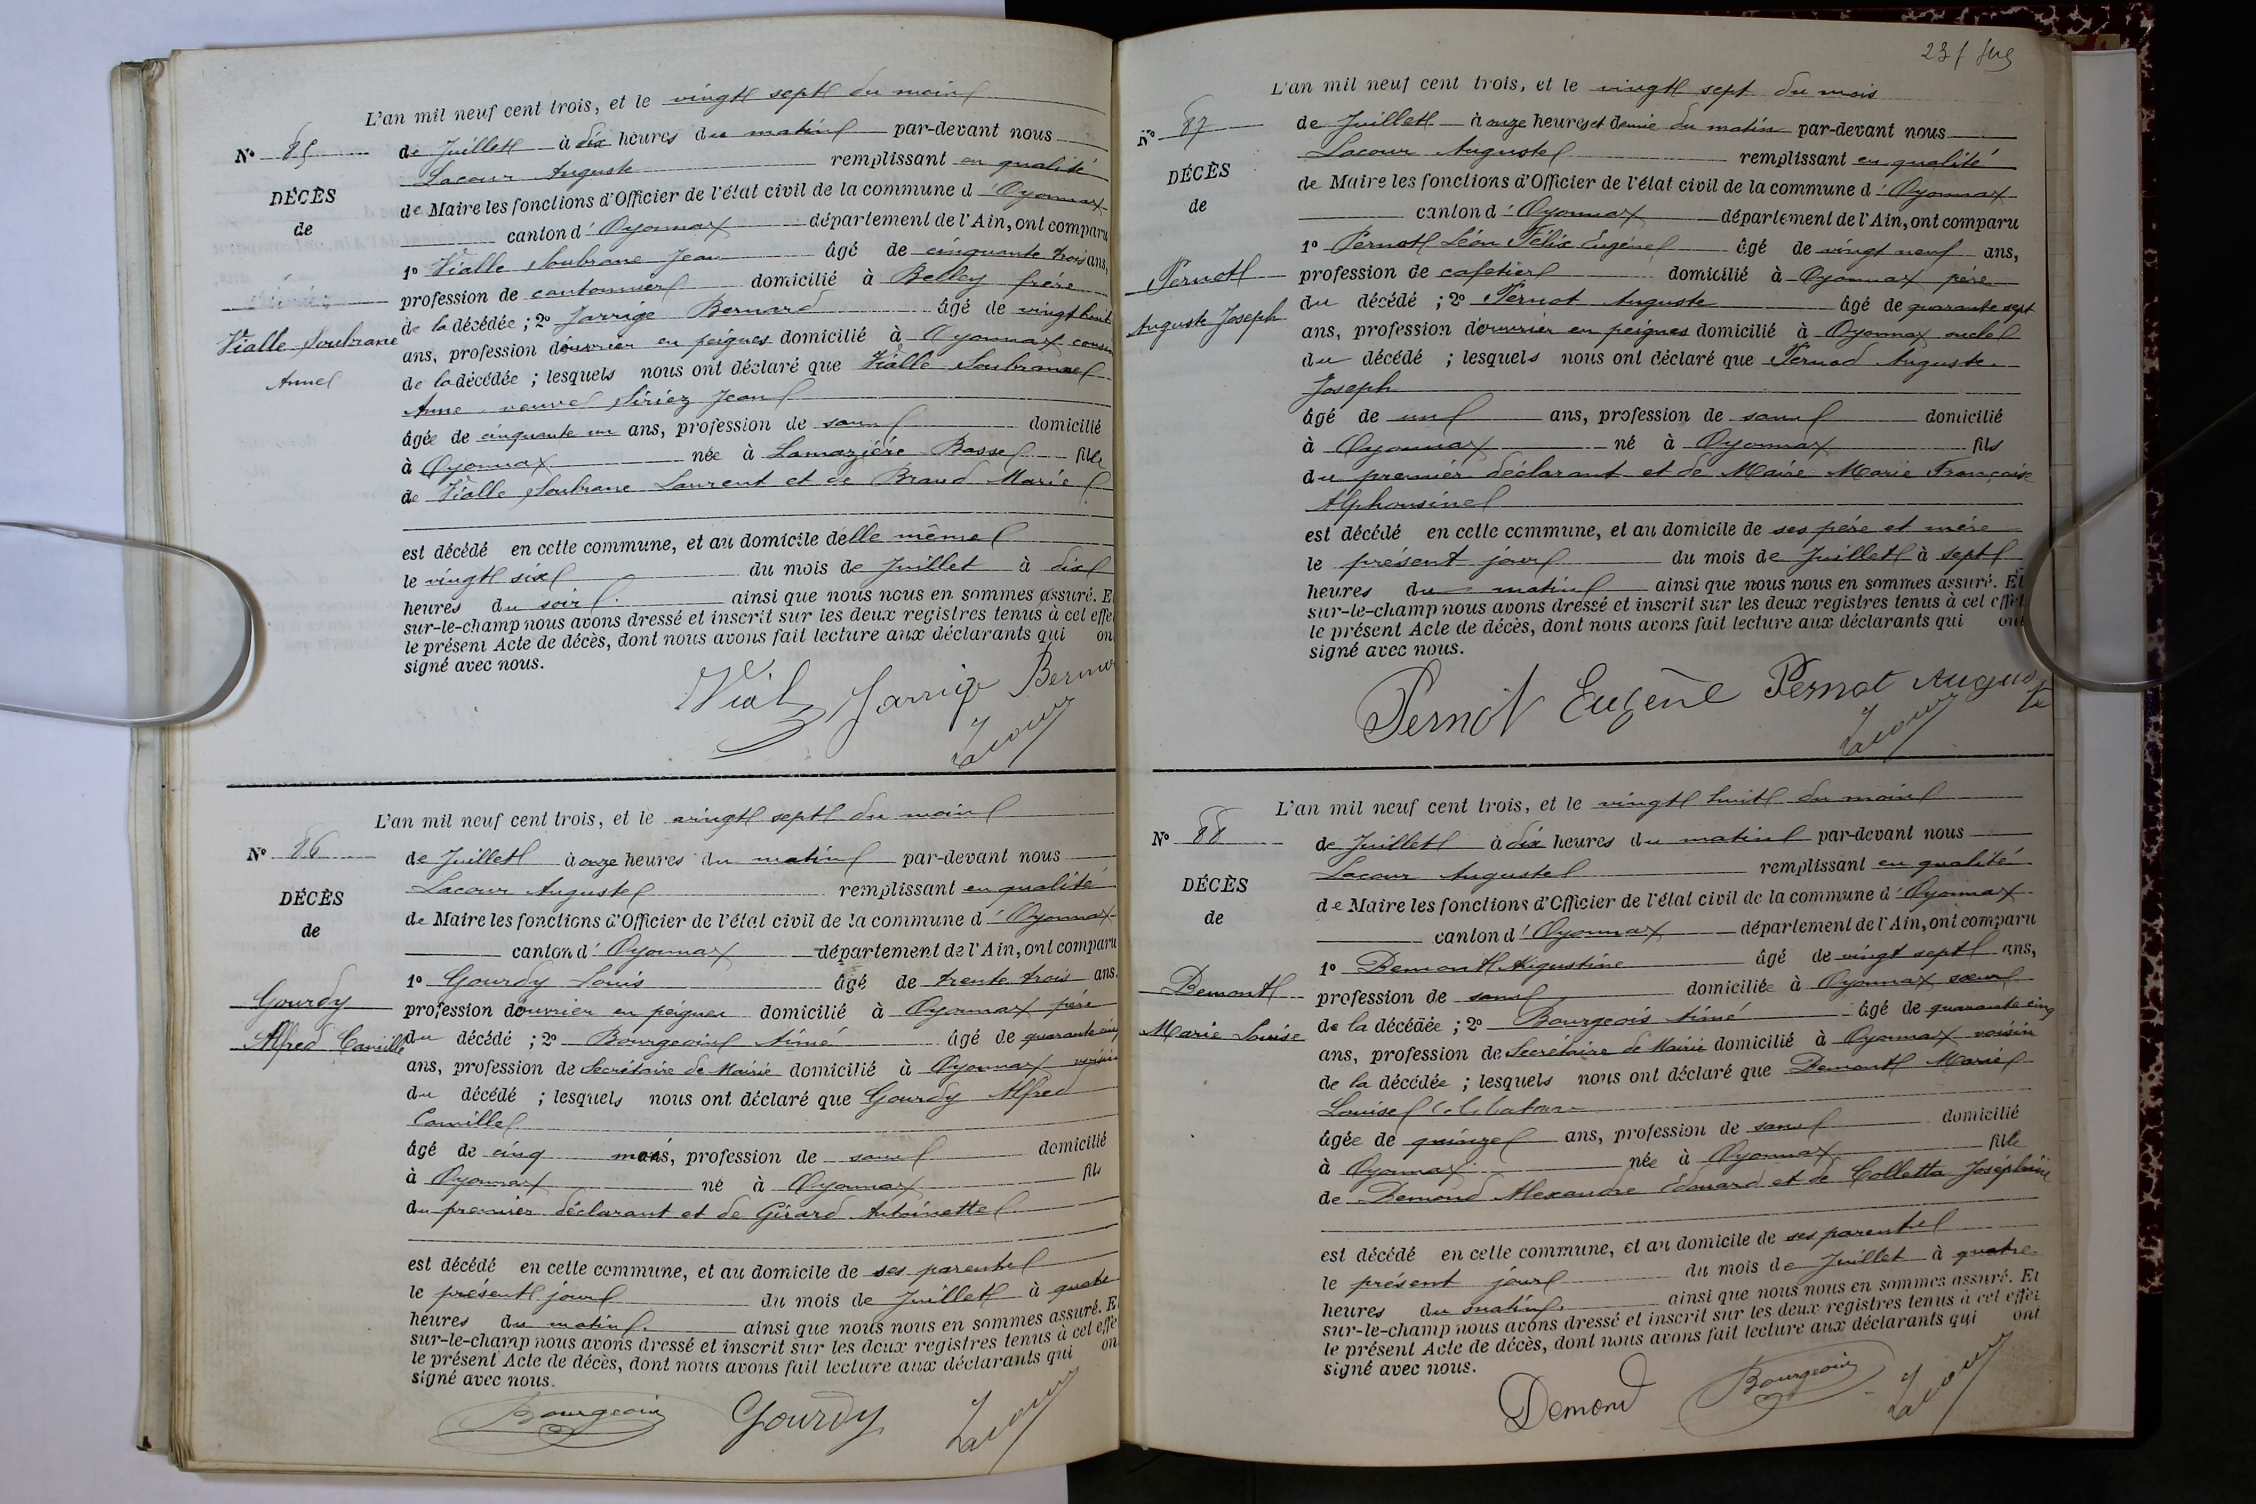 L'an mil neuf cent trois, et le vingt sept du mois
N° 85
de Juillet à dix heures du matin par-devant nous
Lacour Auguste remplissant en qualité
DÉCÈS
de Maire les fonctions d'Officier de l'état civil de la commune d'Oyonnax
de
canton d'Oyonnax département de l'Ain, ont comparu
1° Vialle Soubrane Jean âgé de cinquante trois ans,
profession de cantonnier domicilié à Belley frère
de la décédée ; 2° Jarrige Bernard âgé de vingt huit
Vialle Soubrane
ans, profession d'ouvrier en peignes domicilié à Oyonnax cousin
Anne
de la décédée ; lesquels nous ont déclaré que Vialle Soubrane
Anne veuve Siriez Jean
âgée de cinquante un ans, profession de sans domicilié
à Oyonnax née à Lamazière Basse fille
de Vialle Soubrane Laurent et de Braud Marie
est décédé en cette commune, et au domicile d'elle même
le vingt six du mois de Juillet à dix
heures du soir ainsi que nous nous en sommes assuré. Et
sur-le-champ nous avons dressé et inscrit sur les deux registres tenus à cet effe
le présent Acte de décès, dont nous avons fait lecture aux déclarants qui on
signé avec nous.
Vial Jarrige Bernar
Lacour
L'an mil neuf cent trois, et le vingt sept du mois
N° 86
de Juillet à onze heures du matin par-devant nous
Lacour Auguste remplissant en qualité
DÉCÈS
de Maire les fonctions d'Officier de l'état civil de la commune d'Oyonnax
de
canton d'Oyonnax département de l'Ain, ont comparu
1° Gourdy Louis âgé de trente trois ans,
Gourdy
profession d'ouvrier en peignes domicilié à Oyonnax père
Alfred Camille
du décédé ; 2° Bourgeois Aimé âgé de quarante cinq
ans, profession de Secrétaire de Mairie domicilié à Oyonnax voisin
du décédé ; lesquels nous ont déclaré que Gourdy Alfred
Camille
âgé de cinq mois, profession de sans domicilié
à Oyonnax né à Oyonnax fils
du premier déclarant et de Girard Antoinette
est décédé en cette commune, et au domicile de ses parents
le présent jour du mois de Juillet à quatre
heures du matin ainsi que nous nous en sommes assuré. Et
sur-le-champ nous avons dressé et inscrit sur les deux registres tenus à cet effe
le présent Acte de décès, dont nous avons fait lecture aux déclarants qui on
signé avec nous.
Bourgeois Gourdy Lacour
L'an mil neuf cent trois, et le vingt sept du mois
N° 87
de Juillet à onze heures et demie du matin par-devant nous
Lacour Auguste remplissant en qualité
DÉCÈS
de Maire les fonctions d'Officier de l'état civil de la commune d'Oyonnax
de
canton d'Oyonnax département de l'Ain, ont comparu
1° Pernot Léon Félix Eugène âgé de vingt neuf ans,
Pernot
profession de cafetier domicilié à Oyonnax père
Auguste Joseph
du décédé ; 2° Pernot Auguste âgé de quarante sept
ans, profession d'ouvrier en peignes domicilié à Oyonnax oncle
du décédé ; lesquels nous ont déclaré que Pernod Auguste
Joseph
âgé de un ans, profession de sans domicilié
à Oyonnax né à Oyonnax fils
du premier déclarant et de Maire Marie Françoise
Alphonsine
est décédé en cette commune, et au domicile de ses père et mère
le présent jour du mois de Juillet à sept
heures du matin ainsi que nous nous en sommes assuré. Et
sur-le-champ nous avons dressé et inscrit sur les deux registres tenus à cet effet
le présent Acte de décès, dont nous avons fait lecture aux déclarants qui ont
signé avec nous.
Pernot Eugène Pernot Auguste
Lacour
L'an mil neuf cent trois, et le vingt huit du mois
N° 88
de Juillet à dix heures du matin par-devant nous
Lacour Auguste remplissant en qualité
DÉCÈS
de Maire les fonctions d'Officier de l'état civil de la commune d'Oyonnax
de
canton d'Oyonnax département de l'Ain, ont comparu
1° Demont Augustine âgé de vingt sept ans,
Demont
profession de sans domiciliée à Oyonnax sœur
Marie Louise
de la décédée ; 2° Bourgeois Aimé âgé de quarante cinq
ans, profession de Secrétaire de Mairie domicilié à Oyonnax voisin
de la décédée ; lesquels nous ont déclaré que Demont Marie
Louise
âgée de quinze ans, profession de sans domicilié
à Oyonnax née à Oyonnax fille
de Demond Alexandre Edouard et de Colletta Joséphine
est décédé en cette commune, et au domicile de ses parents
le présent jour du mois de Juillet à quatre
heures du matin ainsi que nous nous en sommes assuré. Et
sur-le-champ nous avons dressé et inscrit sur les deux registres tenus à cet effet
le présent Acte de décès, dont nous avons fait lecture aux déclarants qui ont
signé avec nous.
Demond Bourgeois Lacour